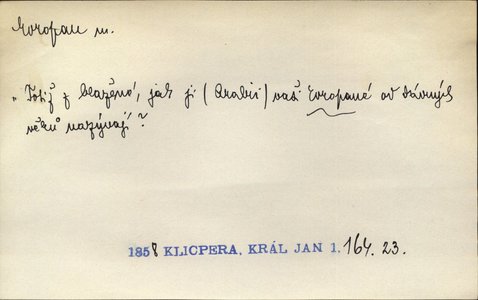 Evropan m.
„Totiž z blažené, jak ji (Arabii) vaši Evropané od dávných
věků nazývají?
1858 KLICPERA, KRÁL JAN 1. 164. 23.